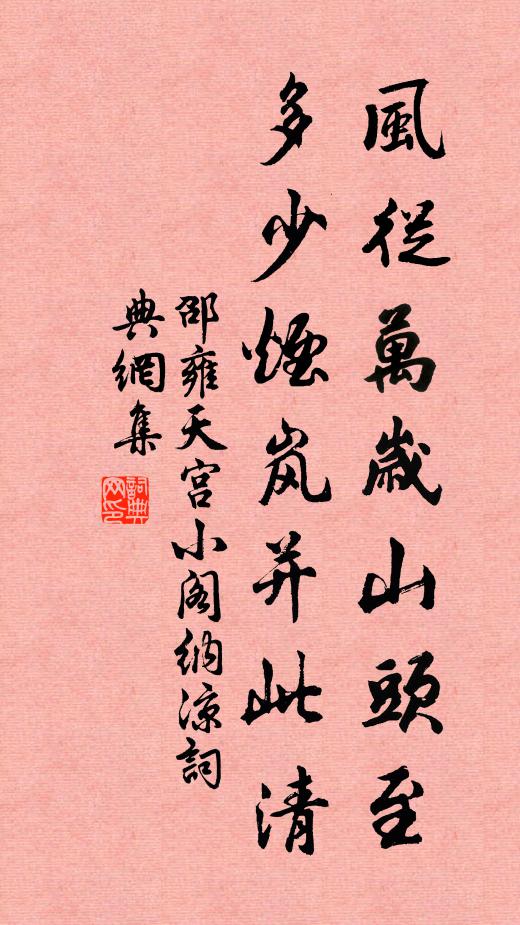 風從萬歲山頭至
多少煙岚并此清
邵雍天宮小閣納凉詞
典網集
詞典
网印